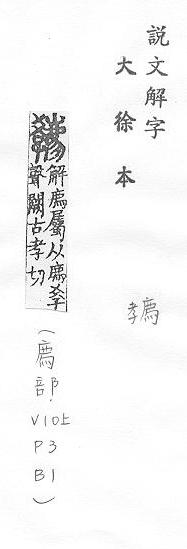 說文解字
大徐本
𢊁
解廌屬从廌孝
聲闕古孝切
(廌部.
V10上
P3
B1)